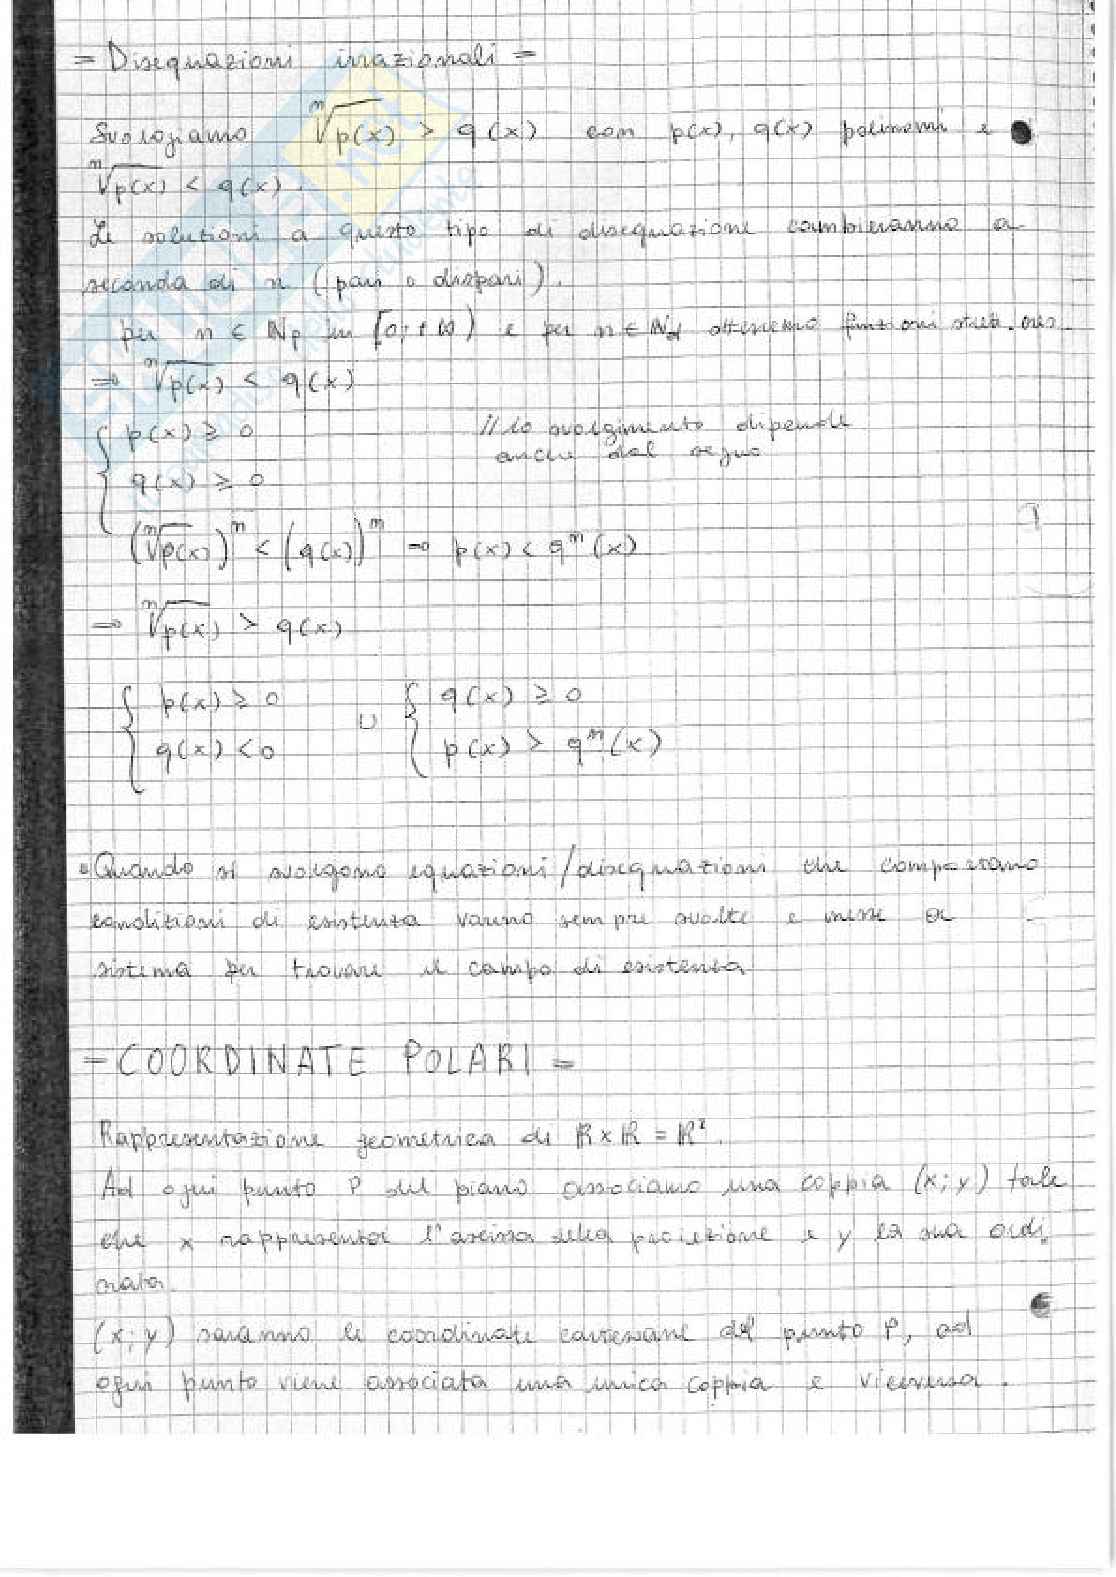 = Disequazioni irrazionali =
Svolgiamo ⁿ√p(x) > q(x) con p(x), q(x) polinomi e
ⁿ√p(x) < q(x).
Le soluzioni a questo tipo di disequazione cambieranno a
seconda di n (pari o dispari).
per n ∈ ℕp in [0,+∞) e per n ∈ ℕd otteniamo funzioni stret. cres.
⇒ ⁿ√p(x) < q(x)
{ p(x) ≥ 0 // lo svolgimento dipende
q(x) ≥ 0 anche dal segno
(ⁿ√p(x))ⁿ < (q(x))ⁿ ⇒ p(x) < qⁿ(x)
⇒ ⁿ√p(x) > q(x)
{ p(x) ≥ 0 ∪ { q(x) ≥ 0
q(x) < 0 p(x) > qⁿ(x)
• Quando si svolgono equazioni/disequazioni che comportano
condizioni di esistenza vanno sempre svolte e messe a
sistema per trovare il campo di esistenza
= COORDINATE POLARI =
Rappresentazione geometrica di ℝ×ℝ = ℝ².
Ad ogni punto P del piano associamo una coppia (x;y) tale
che x rappresenta l'ascissa della proiezione e y la sua ordi
nata.
(x;y) saranno le coordinate cartesiane del punto P, ad
ogni punto viene associata una unica coppia e viceversa.